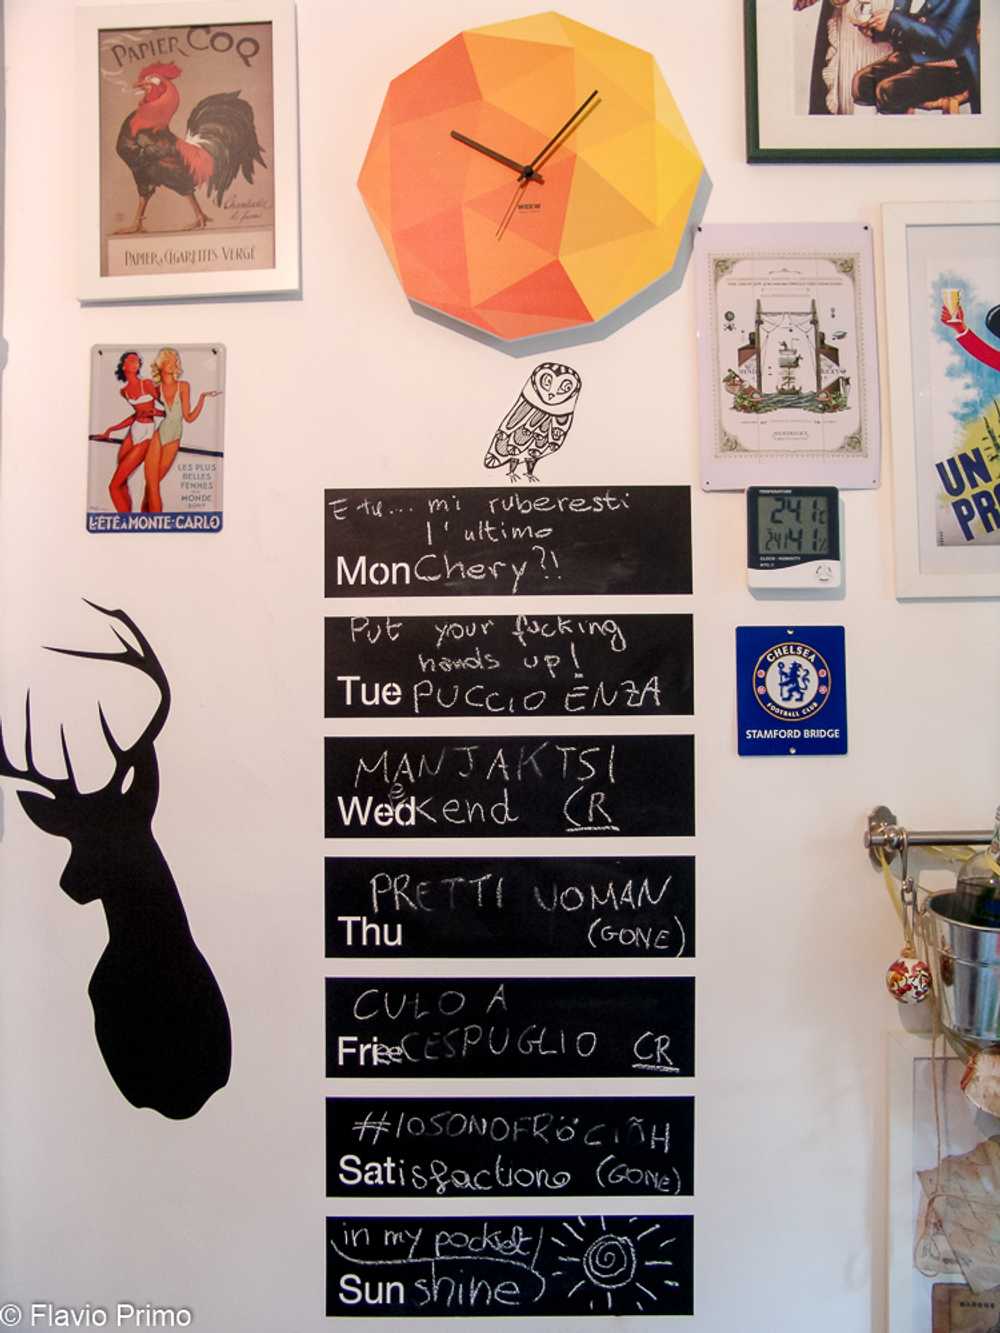 PAPIER COQ
Chantecler
PAPIER A CIGARETTES VERGÉ
WEEW
LES PLUS
BELLES
FEMMES
DU
MONDE
SONT
L'ÉTÉ À MONTE-CARLO
UN
PR
TEMPERATURE
24.1c
41%
CLOCK · HUMIDITY
CHELSEA
FOOTBALL CLUB
STAMFORD BRIDGE
E tu... mi ruberesti
l'ultimo
MonChery?!
Put your fucking
hands up!
Tue PUCCIO ENZA
MANJAKTSI
Weekend CR
PRETTI WOMAN
Thu (GONE)
CULO A
Friee CESPUGLIO CR
#IOSONOFRÖCIÑH
Satisfactiono (GONE)
in my pocket
Sunshine
© Flavio Primo